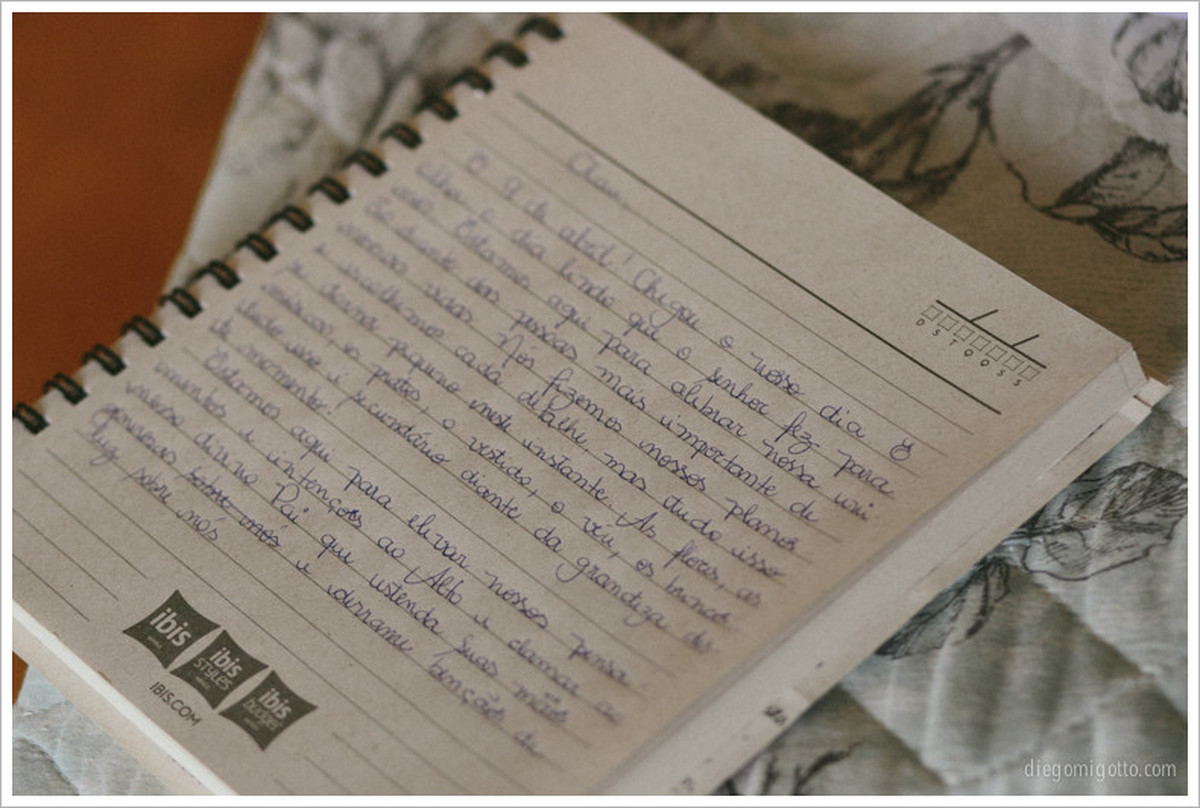 9 de abril! Chegou o nosso dia
o dia lindo que o senhor fez para
nós. Estamos aqui para celebrar nossa uni
diante das pessoas mais importante de
nossas vidas. Nós fizemos nossos planos
e escolhemos cada detalhe, mas tudo isso
se torna pequeno neste instante. As flores, as
músicas, os pratos, o vestido, o véu, os brincos
tudo isso é secundário diante da grandeza do
momento.
Estamos aqui para elevar nossos pensa-
mentos e intenções ao Alto e clamar ao
nosso divino Pai que estenda suas mãos
generosas sobre nós e derrame bençãos de
luz sobre nós
D S T Q Q S S
ibis
ibis
STYLES
ibis
budget
IBIS.COM
diegomigotto.com